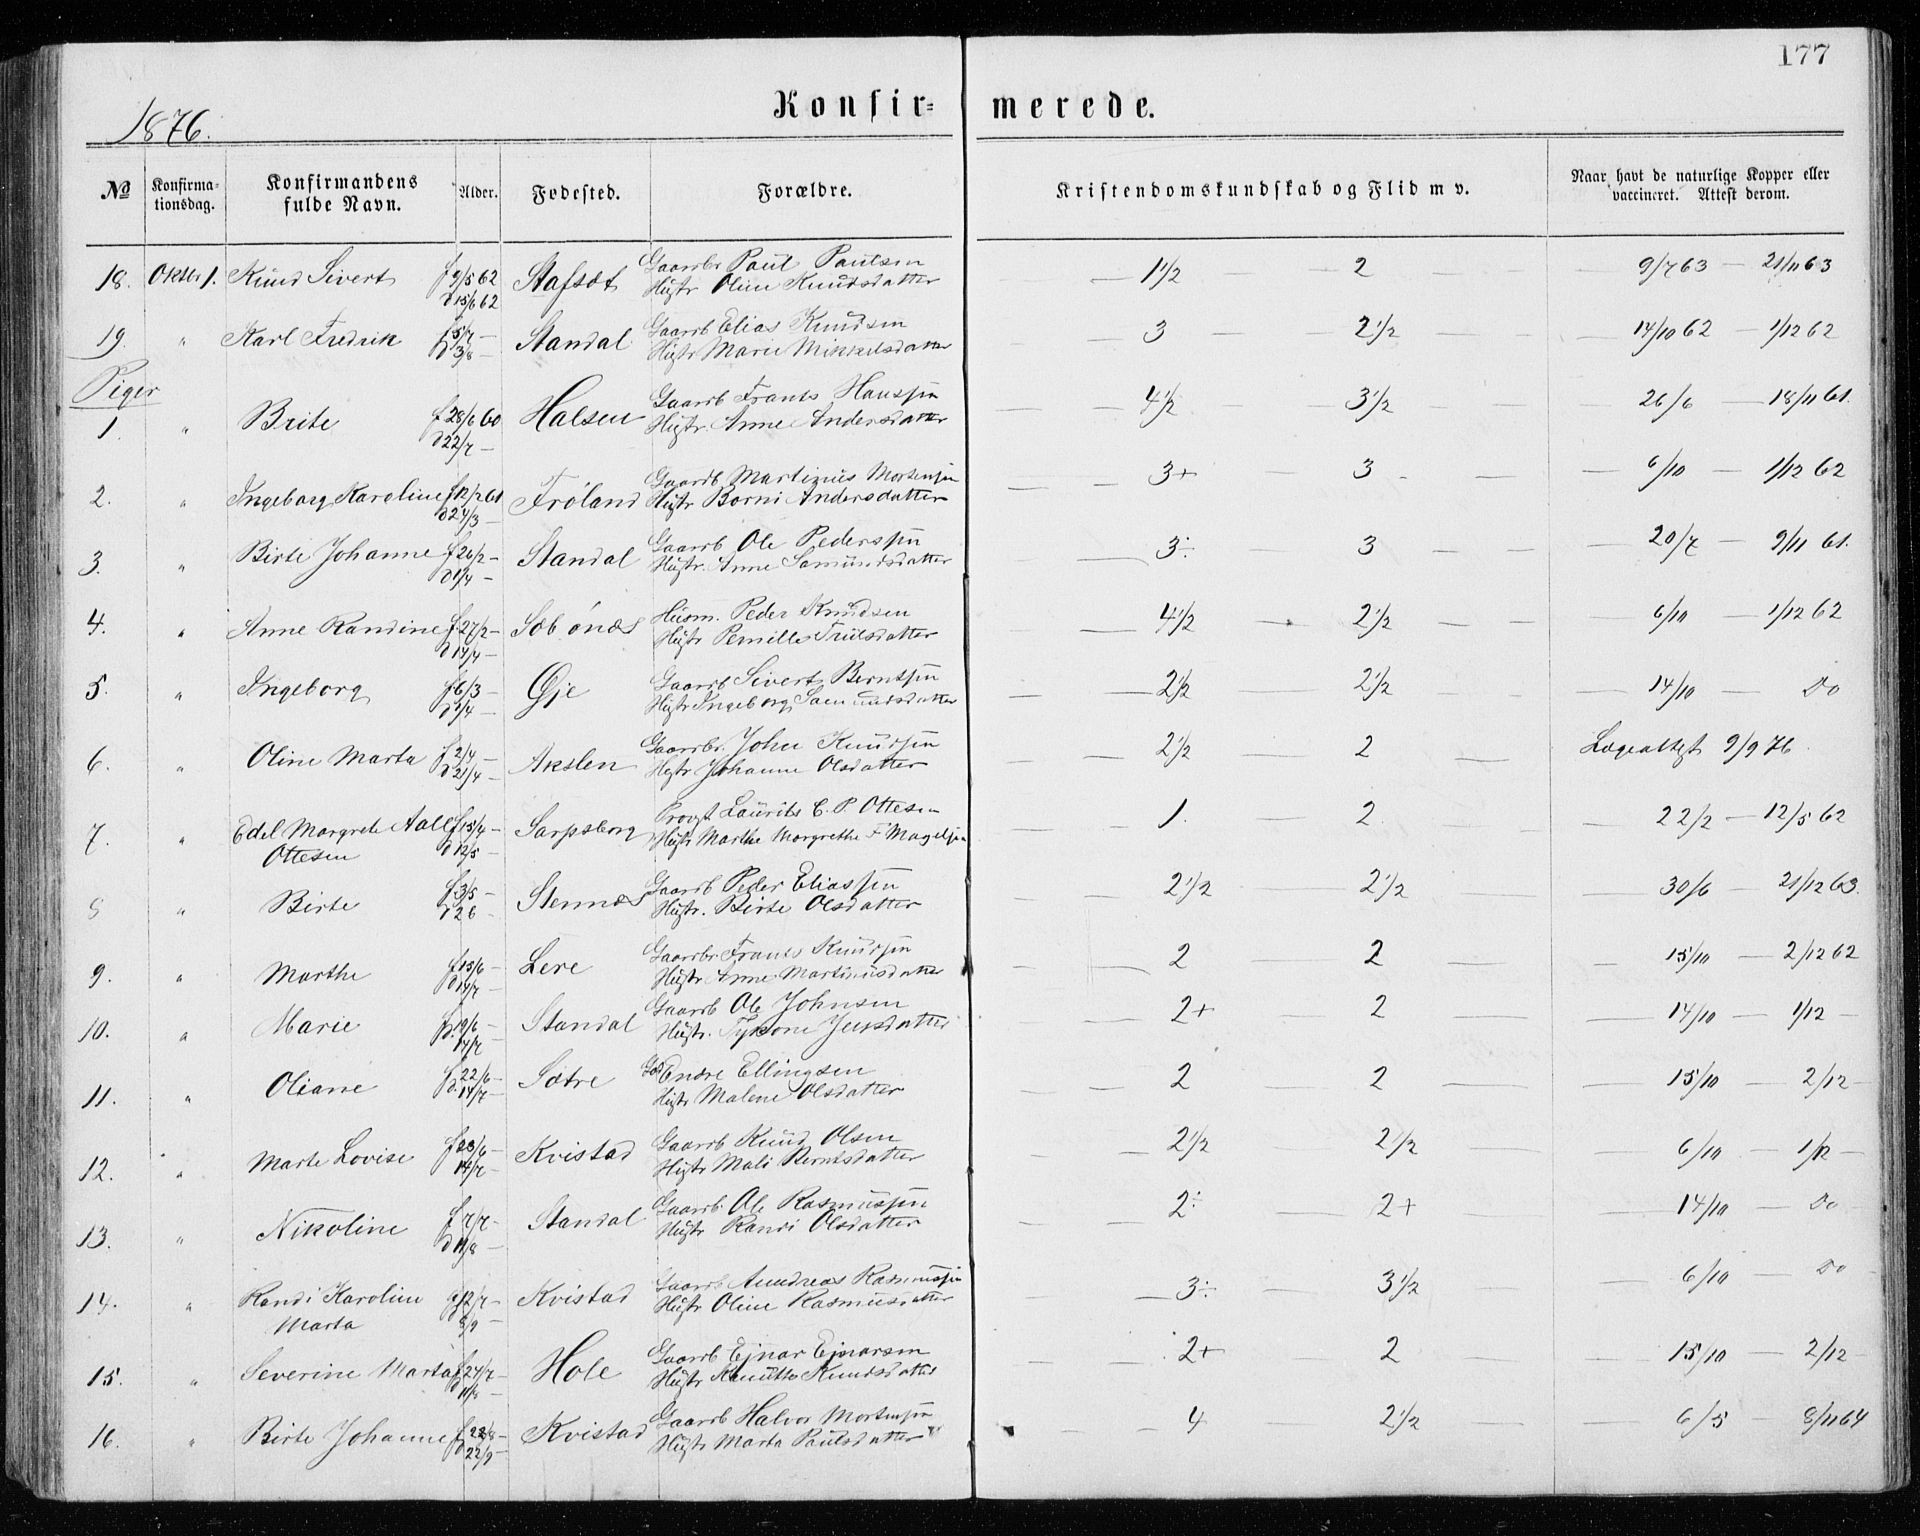 177
1876.
Konfir= merede.
No Konfirma-tionsdag. Konfirmandens fulde Navn. Alder. Fødested. Forældre. Kristendomskundskab og Flid m v. Naar havt de naturlige Kopper eller vaccineret. Attest derom.
18. Oktbr 1. Knud Sivert f 9/5 62 Stafsæt Gaardbr Paul Paulsen — 1½ — 2 — 9/7 63 — 21/11 63
d 15/6 62 Hustr Oline Knudsdatter
19. " Karl Fredrik f 5/7 — Standal Gaardb Elias Knudsen 3 — 2½ — 14/10 62 — 1/12 62
d 3/8 — Hustr Marie Mikkelsdatter
Piger
1. " Brite f 28/6 60 Halsen Gaardb Frants Hansen — 4½ — 3½ — 26/6 — 18/11 61.
d 22/7 — Hustr. Anne Andersdatter
2. " Ingeborg Karoline f 12/2 61 Frøland Gaardb Martinus Mortensen — 3+ — 3 — 6/10 — 1/12 62
d 24/3 — Hustr Borni Andersdatter
3. " Birte Johanne f 26/2 — Standal Gaardb Ole Pedersen — 3÷ 3 — 20/7 — 9/11 61.
d 1/4 — Hustr. Anne Samundsdatter
4. " Anne Randine f 27/2 — Sæbønæs Husm. Peder Knudsen — 4½ — 2½ — 6/10 — 1/12 62
d 14/4 — Hustr Pernille Trulsdatter
5. " Ingeborg f 6/3 — Øje Gaardb Sivert Berntsen — 2½ — 2½ — 14/10 — Do
d 1/4 — Hustr Ingeborg Samundsdatter
6. " Oline Marta f 2/4 — Akslen Gaardbr. John Knudsen — 2½ — 2 — Lægeattest 9/9 76.
d 21/4 — Hustr Johanne Olsdatter
7. " Edel Margrete Aall f 15/4 — Sarpsborg Provst Laurits C. P. Ottesen 1. — 2. — 22/2 — 12/5 62
Ottesen d 12/5 — Hustr Marthe Margrethe F Magelsen
8 " Birte f 3/5 — Stennæs Gaardb Peder Eliassen — 2½ — 2½ — 30/6 — 21/12 63.
d 26 — Hustr. Birte Olsdatter
9. " Marthe f 15/6 — Lere Gaardbr Frants Knudsen 2 — 2 — 15/10 — 2/12 62
d 14/7 — Hustr Anne Martinusdatter
10. " Marie f 19/6 — Standal Gaardb Ole Johnsen — 2+ — 2 — 14/10 — 1/12 —
14/7 Hustr. Jensdatter
11. " Oliane f 22/6 — Sætre Endre Ellingsen 2 2 — 15/10 — 2/12 —
d. 14/7 — Hustr Malene Olsdatter
12. " Marte Lovise f 23/6 — Kvistad Gaardb Knud Olsen — 2½ — 2½ — 6/10 — 1/12 —
14/7 — Hustr Mali Berntsdatter
13. " Nikoline f 7/7 — Standal Gaardb. Ole Rasmussen 2÷ — 2+ — 14/10 — Do
d 11/8 — Hustr Randi Olsdatter
14. " Randi Karoline f 12/7 — Kvistad Gaardb Andreas Rasmussen — 3÷ — 3½ — 6/10 — Do
Marta 8/9 — Hustr Oline Rasmusdatter
15. " Severine Marta f 24/7 — Hole Gaardb Ejnar Ejnarsen 2+ — 2 — 15/10 — 2/12 —
d 11/8 — Hustr Knudsdatter
16. " Birte Johanne f 22/8 — Kvistad Gaardb Halvor Mortensen — 4 — 2½ — 6/5 — 8/11 64
d 22/9 — Hustr Marta Paulsdatter